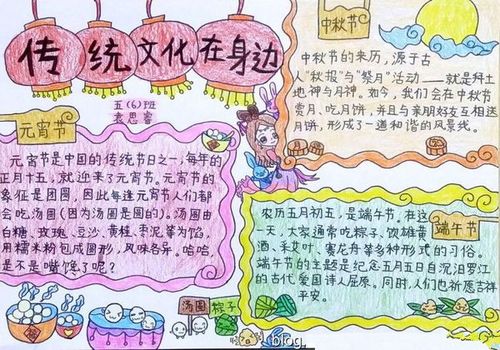 传统文化在身边
五(6)班
袁思睿
元宵节
元宵节是中国的传统节日之一,每年的
正月十五,就迎来了元宵节。元宵节的
象征是团圆,因此每逢元宵节人们都
会吃汤圆(因为汤圆是圆的)。汤圆由
白糖、玫瑰、豆沙、黄桂、枣泥等为馅,
用糯米粉包成圆形,风味各异。哈哈,
是不是嘴馋了呢?
中秋节
中秋节的来历,源于古
人"秋报"与"祭月"活动——就是拜土
地神与月神。如今,我们会在中秋节
赏月、吃月饼,并且与亲朋好友互相送
月饼,形成了一道和谐的风景线。
端午节
农历五月初五,是端午节。在这
一天,大家通常吃粽子、饮雄黄
酒、采艾叶、赛龙舟等多种形式的习俗。
端午节的主题是纪念五月五日自沉汨罗江
的古代爱国诗人屈原。同时,人们也祈愿吉祥
平安。
汤圆
粽子
blog